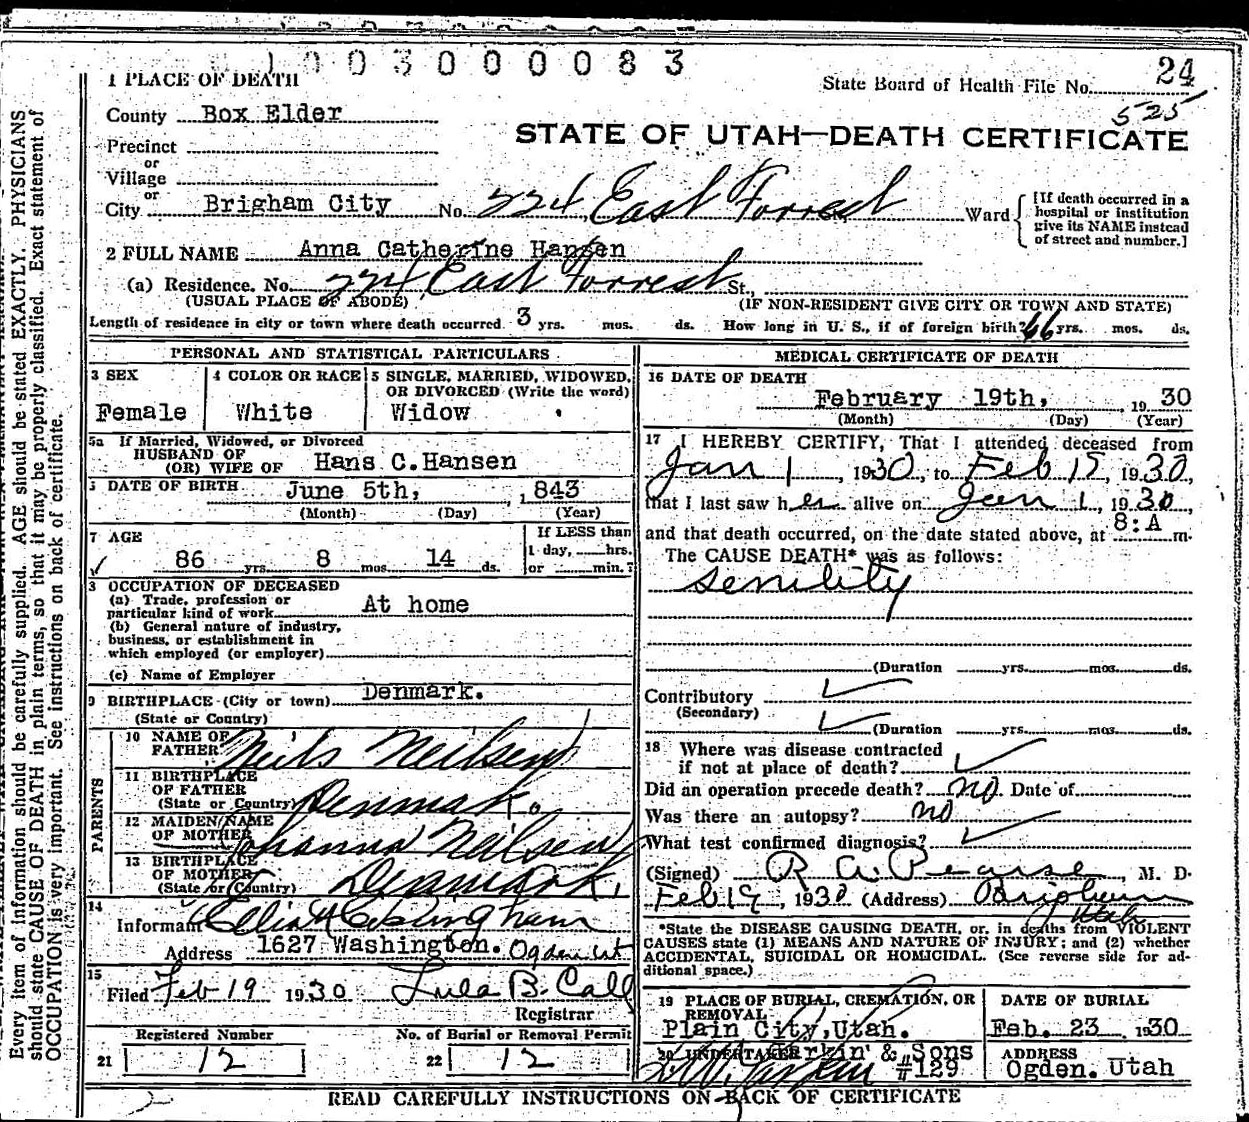 1003000083
1 PLACE OF DEATH
State Board of Health File No. 24
525
County Box Elder
STATE OF UTAH—DEATH CERTIFICATE
Precinct
or
Village
or
City Brigham City No. 224 East Forrest Ward
[If death occurred in a
hospital or institution
give its NAME instead
of street and number.]
2 FULL NAME Anna Catherine Hansen
(a) Residence. No. 224 East Forrest St.,
(USUAL PLACE OF ABODE) (IF NON-RESIDENT GIVE CITY OR TOWN AND STATE)
Length of residence in city or town where death occurred 3 yrs. mos. ds. How long in U. S., if of foreign birth? 66 yrs. mos. ds.
PERSONAL AND STATISTICAL PARTICULARS
3 SEX
Female
4 COLOR OR RACE
White
5 SINGLE, MARRIED, WIDOWED,
OR DIVORCED (Write the word)
Widow
5a If Married, Widowed, or Divorced
HUSBAND OF
(OR) WIFE OF Hans C.Hansen
DATE OF BIRTH June 5th, 1843
(Month) (Day) (Year)
7 AGE
86 yrs. 8 mos. 14 ds.
If LESS than
1 day, hrs.
or min.?
8 OCCUPATION OF DECEASED
(a) Trade, profession or
particular kind of work At home
(b) General nature of industry,
business, or establishment in
which employed (or employer)
(c) Name of Employer
9 BIRTHPLACE (City or town) Denmark.
(State or Country)
PARENTS
10 NAME OF
FATHER Neils Neilsen
11 BIRTHPLACE
OF FATHER
(State or Country) Denmark.
12 MAIDEN NAME
OF MOTHER Johanna Neilsen
13 BIRTHPLACE
OF MOTHER
(State or Country) Denmark.
14
Informant
Address 1627 Washington. Ogden Ut
15
Filed Feb 19 1930 Lula B. Call
Registrar
Registered Number
21 12
No. of Burial or Removal Permit
22 12
MEDICAL CERTIFICATE OF DEATH
16 DATE OF DEATH
February 19th, 1930
(Month) (Day) (Year)
17 I HEREBY CERTIFY, That I attended deceased from
Jan 1, 1930, to Feb 1930,
that I last saw her alive on Jan 1, 1930,
and that death occurred, on the date stated above, at 8:A m.
The CAUSE DEATH* was as follows:
senility
(Duration yrs. mos. ds.
Contributory
(Secondary)
(Duration yrs. mos. ds.
18 Where was disease contracted
if not at place of death?
Did an operation precede death? no. Date of
Was there an autopsy? no
What test confirmed diagnosis?
(Signed) R. A. Pearse, M. D.
Feb 19, 1930 (Address) Brigham
Utah
*State the DISEASE CAUSING DEATH, or, in deaths from VIOLENT
CAUSES state (1) MEANS AND NATURE OF INJURY; and (2) whether
ACCIDENTAL, SUICIDAL OR HOMICIDAL. (See reverse side for ad-
ditional space.)
19 PLACE OF BURIAL, CREMATION, OR
REMOVAL
Plain City, Utah.
DATE OF BURIAL
Feb. 23 1930
20 UNDERTAKER Larkin & Sons
#129
ADDRESS
Ogden. Utah
READ CAREFULLY INSTRUCTIONS ON BACK OF CERTIFICATE
Every item of information should be carefully supplied. AGE should be stated EXACTLY. PHYSICIANS
should state CAUSE OF DEATH in plain terms, so that it may be properly classified. Exact statement of
OCCUPATION is very important. See instructions on back of certificate.